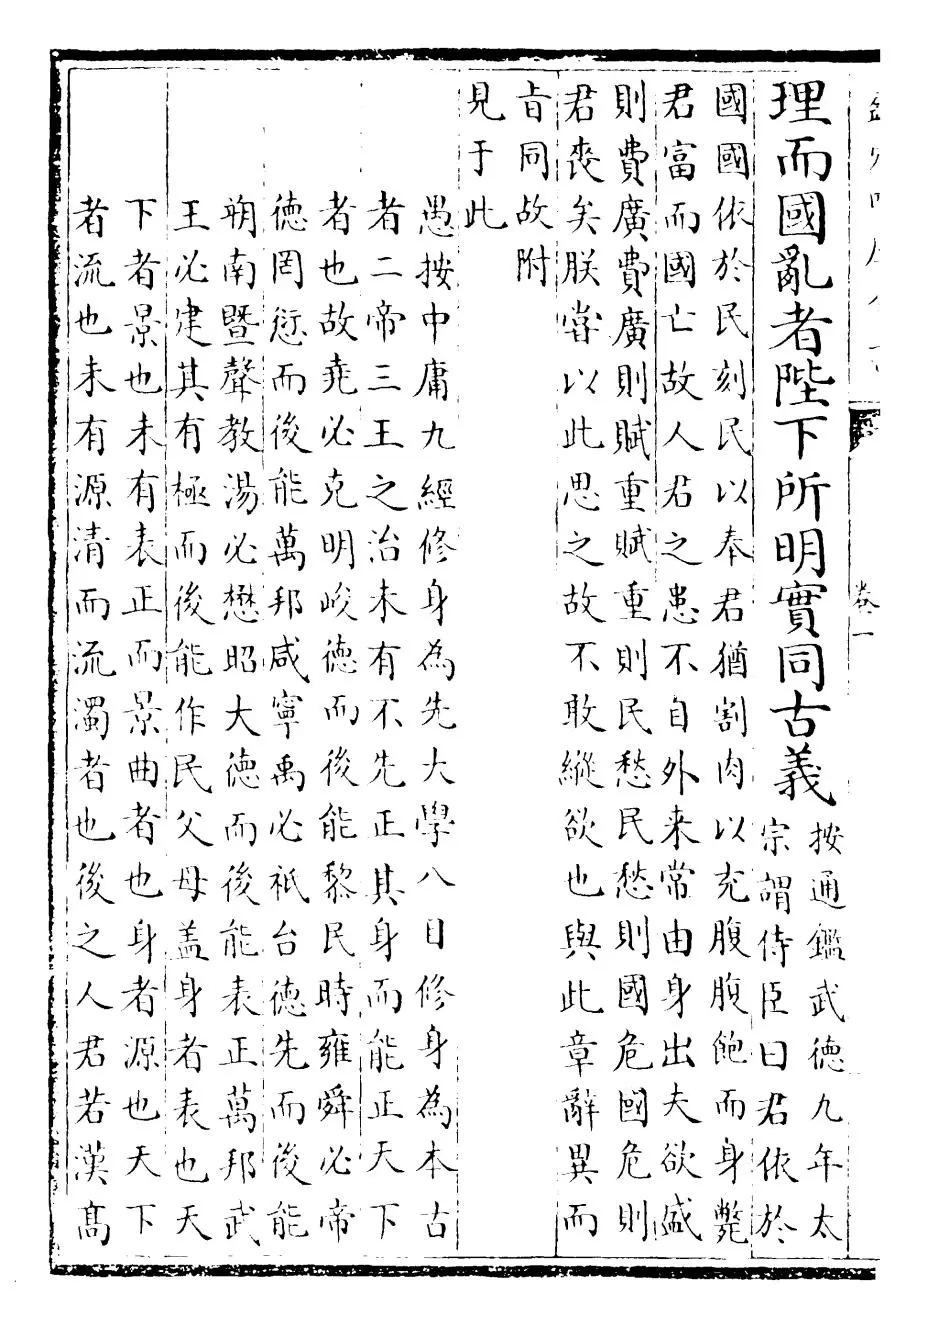 卷一
理而國亂者陛下所明實同古義
按通鑑武德九年太
宗謂侍臣曰君依於
國國依於民刻民以奉君猶割肉以充腹腹飽而身斃
君富而國亡故人君之患不自外来常由身出夫欲盛
則費廣費廣則賦重賦重則民愁民愁則國危國危則
君喪矣朕嘗以此思之故不敢縱欲也與此章辭異而
旨同故附
見于此
愚按中庸九經修身為先大學八目修身為本古
者二帝三王之治未有不先正其身而能正天下
者也故堯必克明峻德而後能黎民時雍舜必帝
德罔愆而後能萬邦咸寧禹必祗台德先而後能
朔南暨聲教湯必懋昭大德而後能表正萬邦武
王必建其有極而後能作民父母盖身者表也天
下者景也未有表正而景曲者也身者源也天下
者流也未有源清而流濁者也後之人君若漢髙